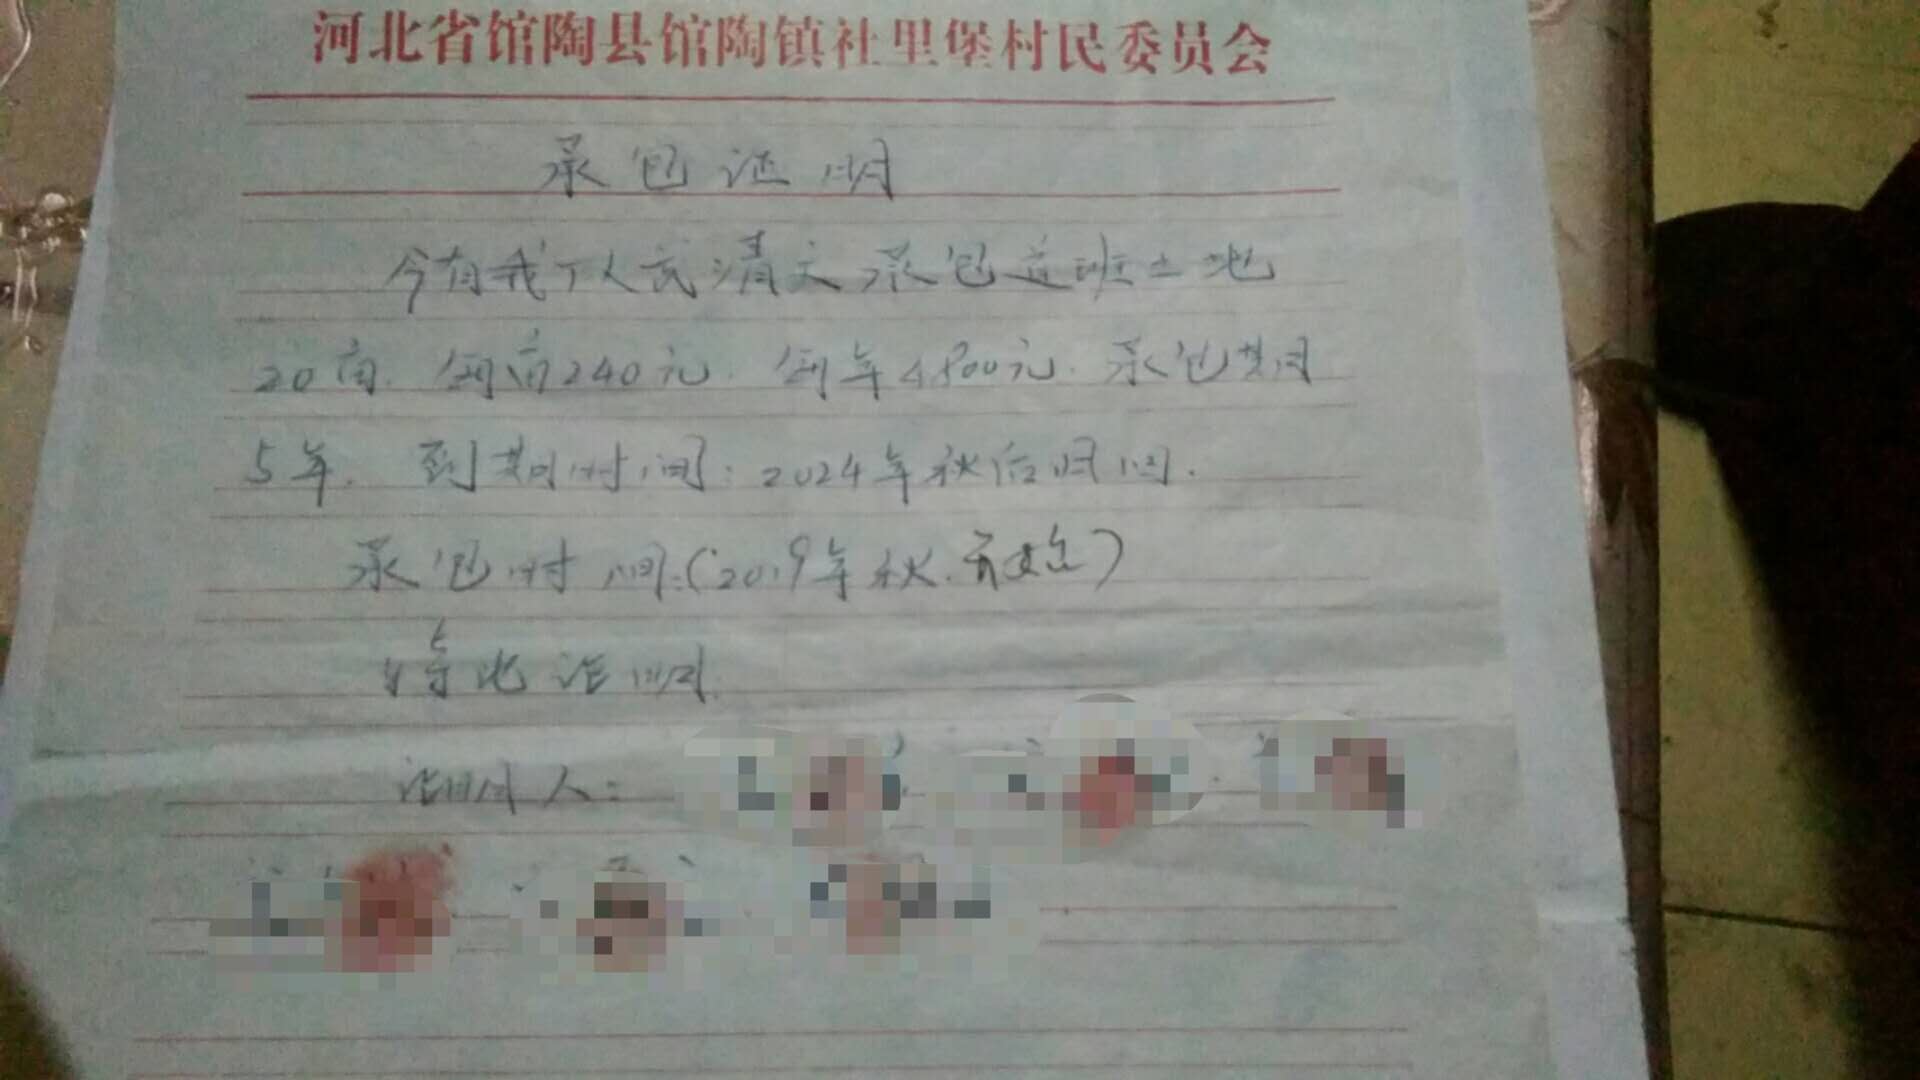 河北省馆陶县馆陶镇社里堡村民委员会
承包证明
今有我丁人武清文承包道班土地
20亩. 每亩240元. 每年4800元. 承包其间
5年. 到期时间:2024年秋后归回.
承包时间:(2019年秋.有效)
特此证明.
证明人: